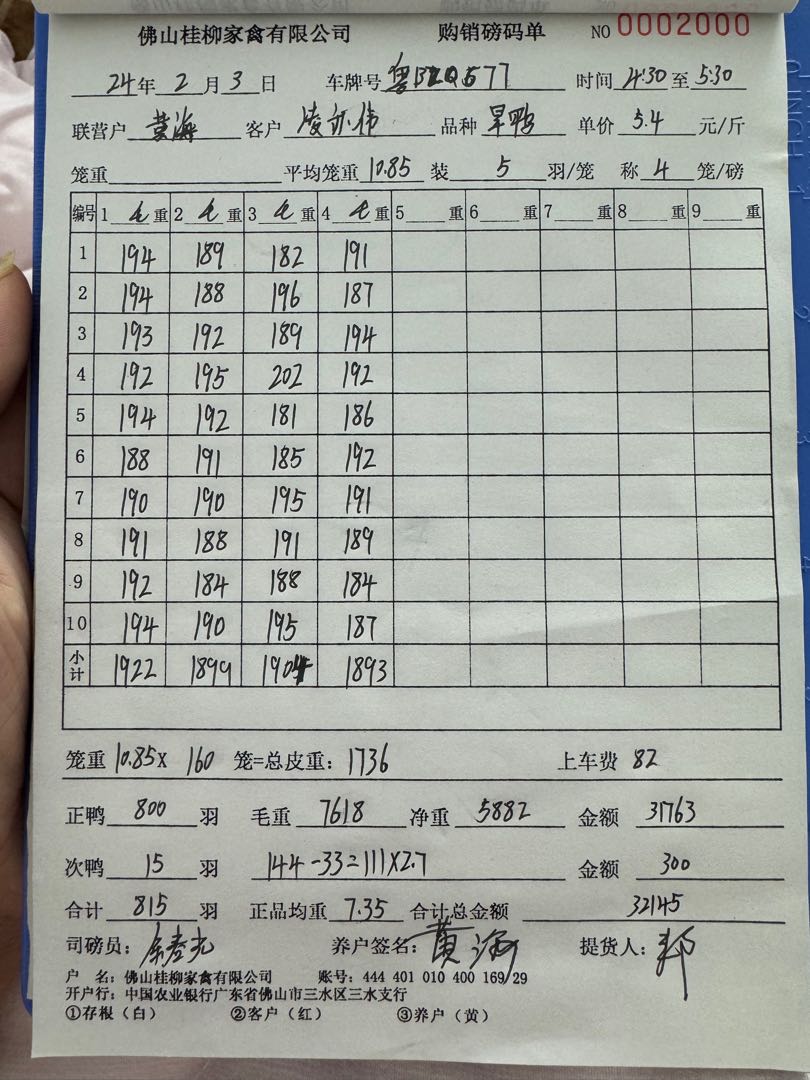 佛山桂柳家禽有限公司 购销磅码单 NO 0002000
24年 2 月 3 日 车牌号 粤BZQ577 时间 4:30 至 5:30
联营户 黄海 客户 凌亦伟 品种 旱鸭 单价 5.4 元/斤
笼重 平均笼重 10.85 装 5 羽/笼 称 4 笼/磅
编号 1 毛 重 2 毛 重 3 毛 重 4 毛 重 5 重 6 重 7 重 8 重 9 重
1 194 189 182 191
2 194 188 196 187
3 193 192 189 194
4 192 195 202 192
5 194 192 181 186
6 188 191 185 192
7 190 190 195 191
8 191 188 191 189
9 192 184 188 184
10 194 190 195 187
小计 1922 1899 1904 1893
笼重 10.85X 160 笼=总皮重: 1736 上车费 82
正鸭 800 羽 毛重 7618 净重 5882 金额 31763
次鸭 15 羽 144-33=111X2.7 金额 300
合计 815 羽 正品均重 7.35 合计总金额 32145
司磅员: 养户签名: 黄海 提货人:
户 名: 佛山桂柳家禽有限公司 账号: 444 401 010 400 169 29
开户行: 中国农业银行广东省佛山市三水区三水支行
①存根（白） ②客户（红） ③养户（黄）